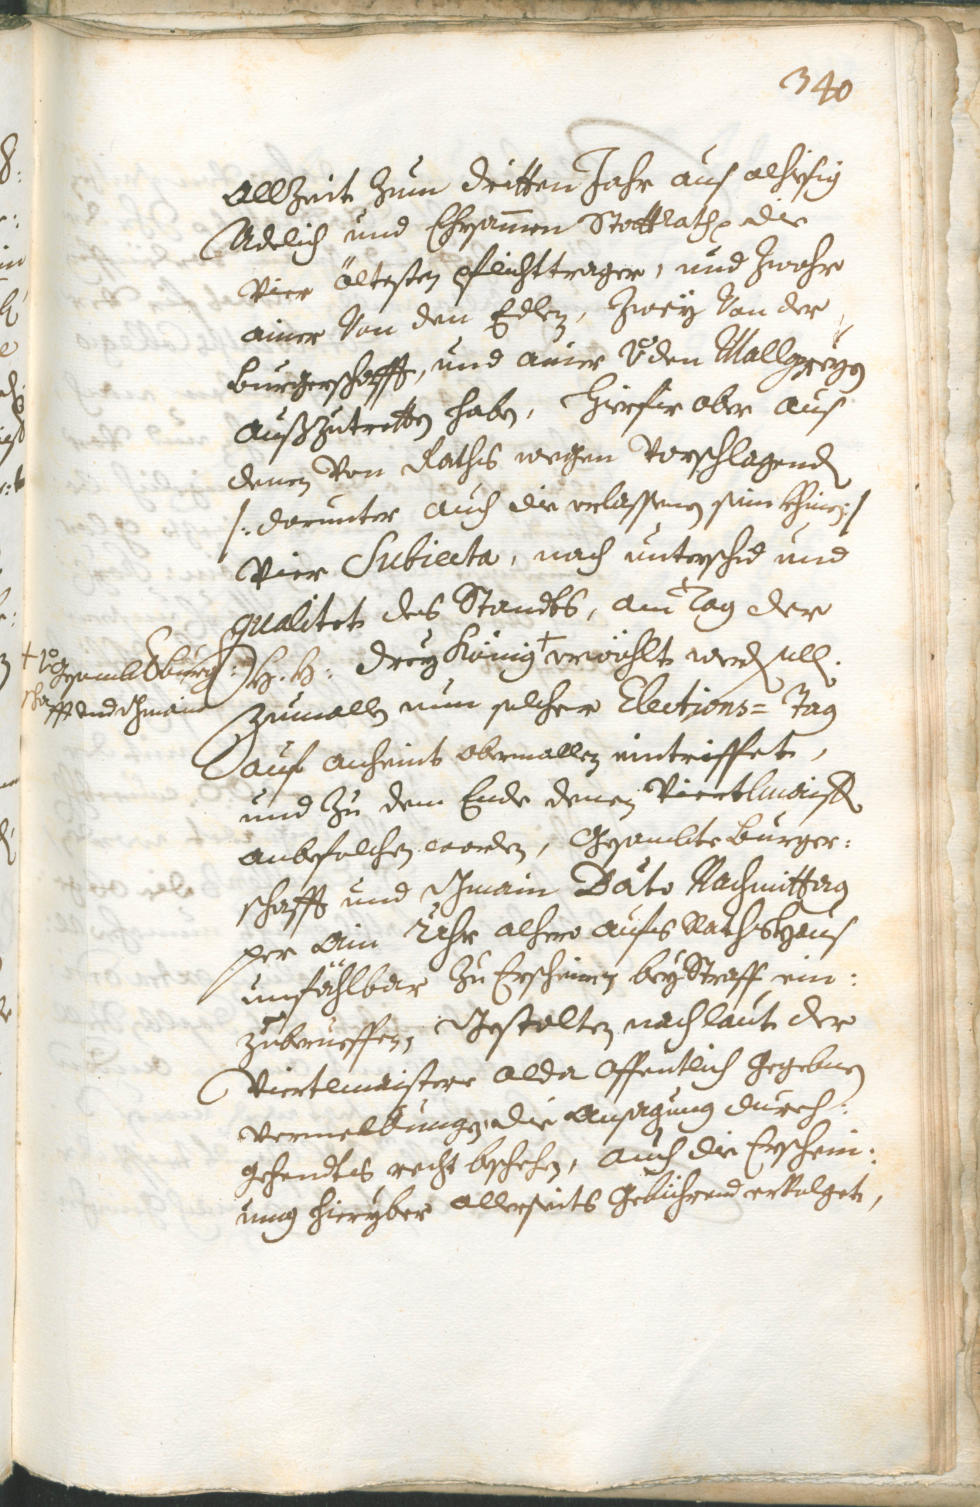 340
allzeit zum dritten Jahr aus alhiesig
Adelich und Ehrsammen Stattrath die
vier öltesten pflichttrager, und zwahr
ainer von den Edlen, zwey von der
burgerschafft, und ainer v̈: den Mallgreyen
ausszutretten haben, hierfir aber aus
denen von Raths wegen vorschlagend
/: darunter auch die erlassenen sein khinen :/
vier Subiecta, nach unterschid und
qualitet des Standts, am Tag der
H: H: drey König + erwöhlt werden soll.
+ v̈: gesamblt burg:
schafft und Gmain
Zumallen nun solcher Elections= Tag
auf anheint abermallen eintriffet,
und zu dem Ende denen Viertlmaistern
anbefolchen worden, gesambte burger:
schafft und Gmain Dato Nachmittag
per ain Uhr alhero aufs Rathshaus
unfählbar zu Erscheinen bey Straff ein:
zuberueffen, Gestalten nach laut der
Viertlmaistere alda offentlich gegebnen
vermeldungen, die Ansagung durch:
gehendts recht beschehen, auch die Erschein:
ung hieryber allerseits gebührend ervolget,